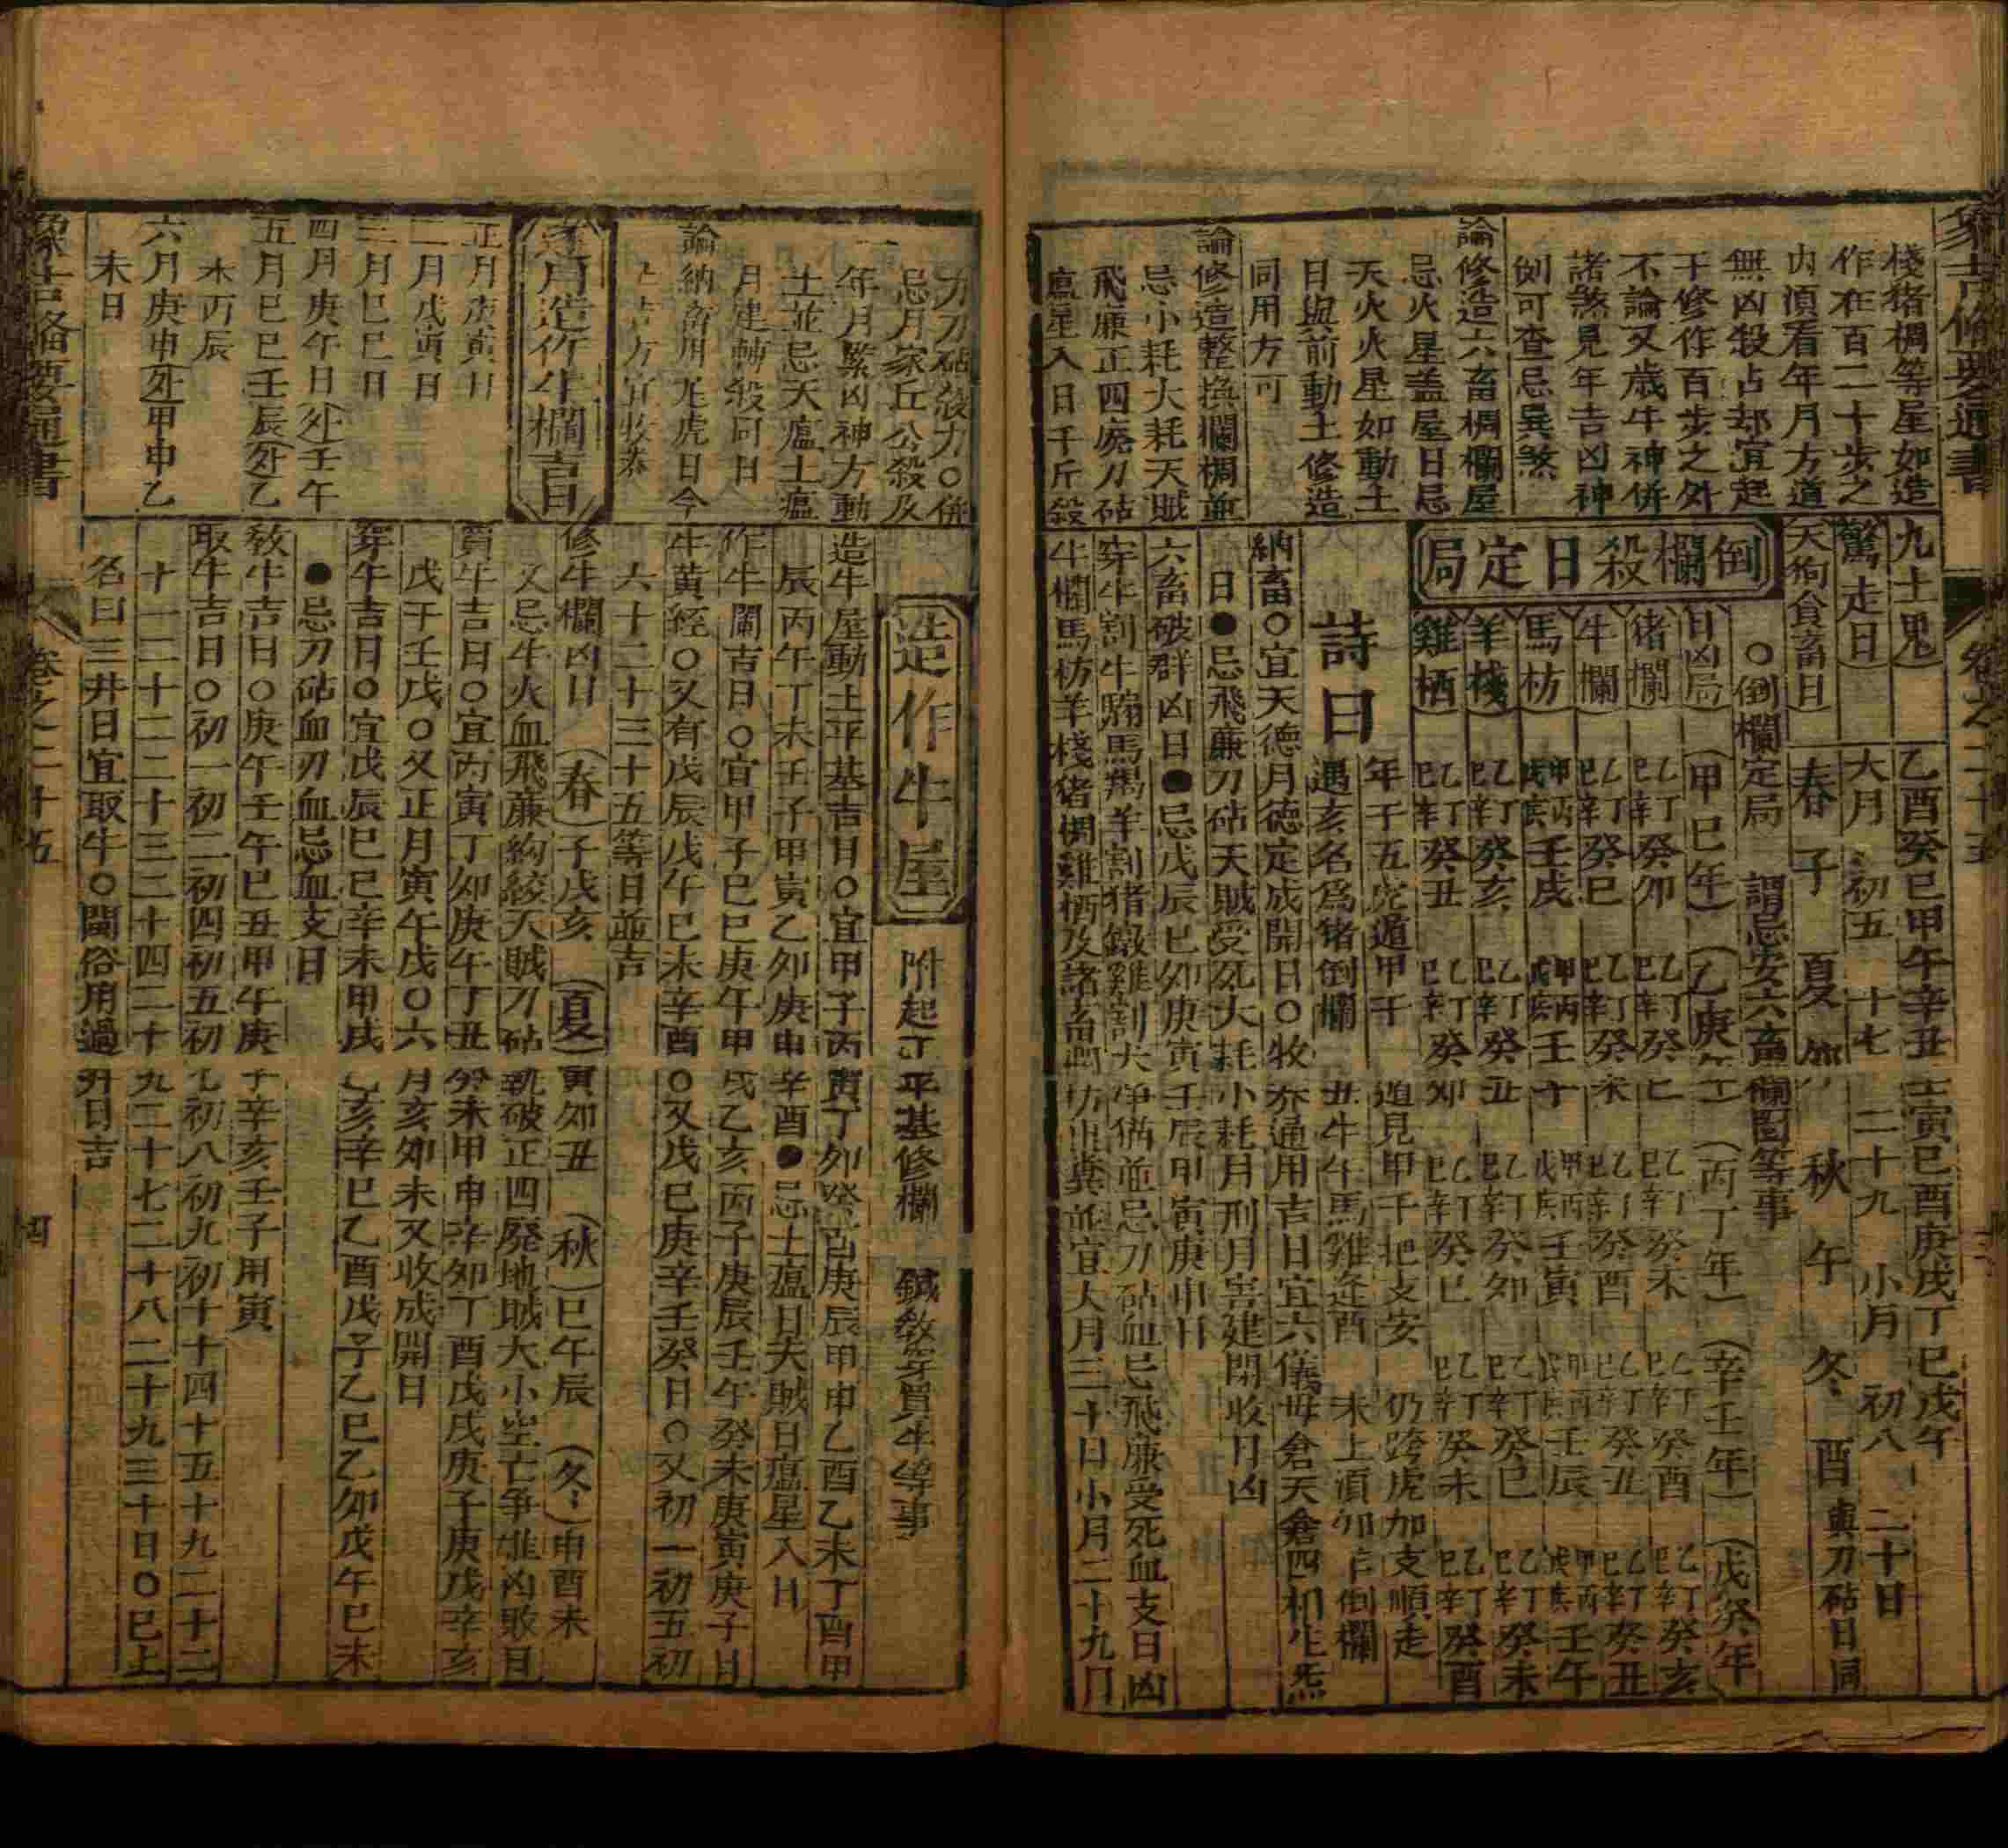 象吉備要通書
卷之二十五
棧猪椆等星如造
作在百二十步之
內須看年月方道
無凶殺占却宜起
干修作百步之外
不論又歲牛神併
諸煞見年吉凶神
例可查忌異煞
論修造六畜椆欄屋
忌火星盖屋日忌
天火火星如動土
日與前動土修造
同用方可
論修造整換欄椆並
忌小耗大耗天賊
飛廉正四廢刀砧
瘟星入日千斤殺
九土鬼 乙酉癸巳甲午辛丑壬寅巳酉庚戌丁巳戊午
驚走日 大月 初五 十七 二十九 小月 初八 二十日
天狗食畜日 春 子 夏 卯 秋 午 冬 酉 與刀砧日同
倒欄殺日定局
○倒欄定局 謂忌安六畜欄圈等事
日凶局 甲巳年 乙庚年 丙丁年 辛壬年 戊癸年
猪欄 乙丁巳辛癸卯 乙丁巳辛癸巳 乙丁巳辛癸未 乙丁巳辛癸酉 乙丁巳辛癸亥
牛欄 乙丁巳辛癸巳 乙丁巳辛癸未 乙丁巳辛癸酉 乙丁巳辛癸丑 乙丁巳辛癸丑
馬枋 甲丙戊庚壬戌 甲丙戊庚壬子 甲丙戊庚壬寅 甲丙戊庚壬辰 甲丙戊庚壬午
羊棧 乙丁巳辛癸亥 乙丁巳辛癸丑 乙丁巳辛癸卯 乙丁巳辛癸巳 乙丁巳辛癸未
雞栖 乙丁巳辛癸丑 乙丁巳辛癸卯 乙丁巳辛癸巳 乙丁巳辛癸未 乙丁巳辛癸酉
詩曰
年干五虎遁甲干 遁見甲干把支安 仍跨虎加支順走
遇亥名爲猪倒欄 丑牛午馬雞逢酉 未上須知作倒欄
納畜○宜天德月德定成開日○牧養通用吉日宜六儀母倉天倉四相生炁
日●忌飛廉刀砧天賊受死大耗小耗月刑月害建閉收日凶
六畜破群凶日●忌戊辰巳卯庚寅壬辰甲寅庚申日
穿牛割牛騸馬羯羊割猪鐓雞割犬淨猫並忌刀砧血忌飛廉受死血支日凶
牛欄馬枋羊棧猪椆雞栖及諸畜椆坊出糞並宜大月三十日小月二十九日
力刀砧殺力○併
忌月家丘公殺及
年月緊凶神方動
土並忌天瘟土瘟
月建轉殺同日
論納畜用危虎日今
上吉方宜牧养
逐月造作牛欄吉日
正月庚寅日
二月戊寅日
三月巳巳日
四月庚午日外壬午
五月巳巳壬辰外乙
未丙辰
六月庚申外甲申乙
未日
造作牛屋 附起工平基修欄 鍼教穿買牛等事
造牛屋動土平基吉日○宜甲子丙寅丁卯癸酉庚辰甲申乙酉乙未丁酉甲
辰丙午丁未壬子甲寅乙卯庚申辛酉●忌土瘟日天賊日瘟星入日
作牛闌吉日○宜甲子巳巳庚午甲戌乙亥丙子庚辰壬午癸未庚寅庚子日
牛黃經○又有戊辰戊午巳未辛酉○又戊巳庚辛壬癸日○又初一初五初
六十二十三十五等日並吉
修牛欄凶日 春子戌亥 夏寅卯丑 秋巳午辰 冬申酉未
又忌牛火血飛廉絢絞天賊刀砧執破正四廢地賊大小空亡爭雄凶敗日
買牛吉日○宜丙寅丁卯庚午丁丑癸未甲申辛卯丁酉戊戌庚子庚戌辛亥
戊午壬戌○又正月寅午戌○六月亥卯未又收成開日
穿牛吉日○宜戊辰巳巳辛未甲戌乙亥辛巳乙酉戊子乙巳乙卯戊午巳未
●忌刀砧血刃血忌血支日
敎牛吉日○庚午壬午巳丑甲午庚子辛亥壬子用寅
取牛吉日○初一初二初四初五初七初八初九初十十四十五十九二十二
十一二十二二十三二十四二十九二十七二十八二十九三十日○巳上
名曰三井日宜取牛○閩俗用過升日吉
象吉備要通書
卷之二十五
四